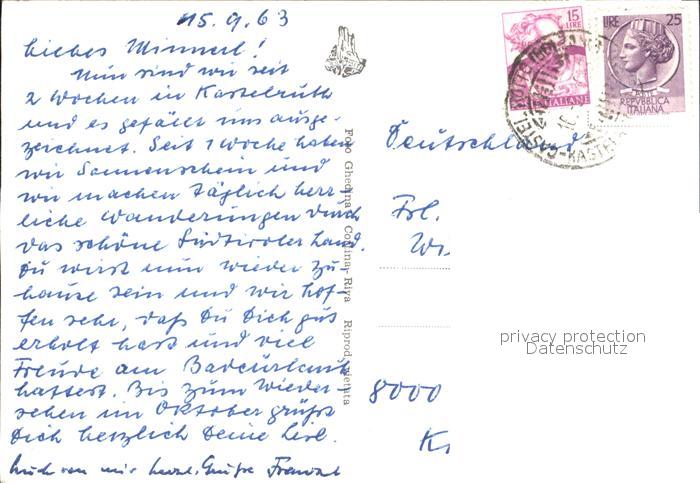 15.9.63
Liebes Minnerl!
Nun sind wir seit
2 Wochen in Kastelruth
und es gefällt uns ausge-
zeichnet. Seit 1 Woche haben
wir Sonnenschein und
wir machen täglich herr-
liche Wanderungen durch
das schöne Südtiroler Land.
Du wirst nun wieder zu-
hause sein und wir hof-
fen sehr, daß Du Dich gut
erholt hast und viel
Freude am Badeurlaub
hattest. Bis zum Wieder-
sehen im Oktober grüßt
Dich herzlich Deine Lisl.
Auch von mir herzl. Grüße
Foto Ghedina, Cortina, Riva Riprod. vietata
15
LIRE
ITALIANE
LIRE 25
REPVBBLICA
ITALIANA
Deutschland
Frl.
8000
privacy protection
Datenschutz